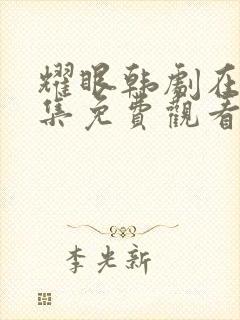 耀眼韩剧在
集免費觀看
李光新